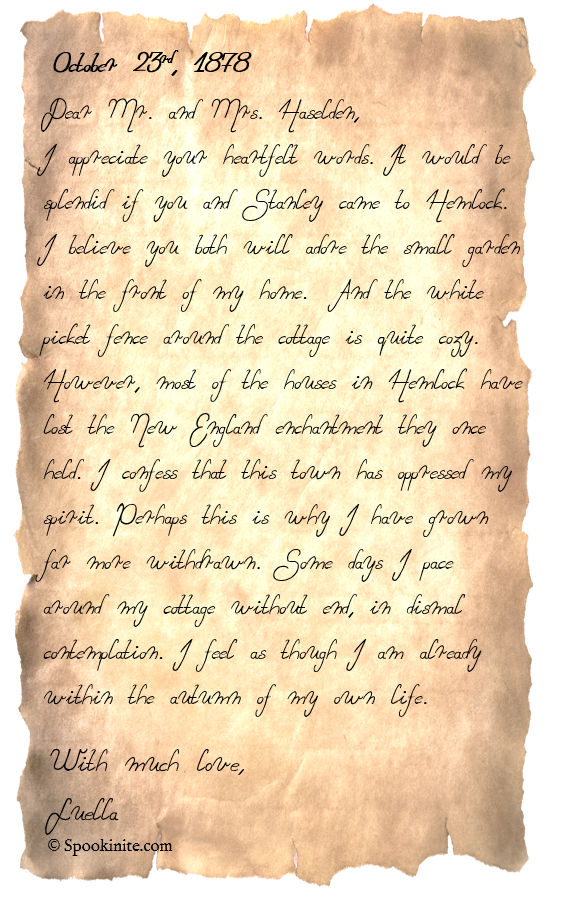 October 23rd, 1878
Dear Mr. and Mrs. Haselden,
I appreciate your heartfelt words. It would be
splendid if you and Stanley came to Hemlock.
I believe you both will adore the small garden
in the front of my home. And the white
picket fence around the cottage is quite cozy.
However, most of the houses in Hemlock have
lost the New England enchantment they once
held. I confess that this town has oppressed my
spirit. Perhaps this is why I have grown
far more withdrawn. Some days I pace
around my cottage without end, in dismal
contemplation. I feel as though I am already
within the autumn of my own life.
With much love,
Luella
© Spookinite.com